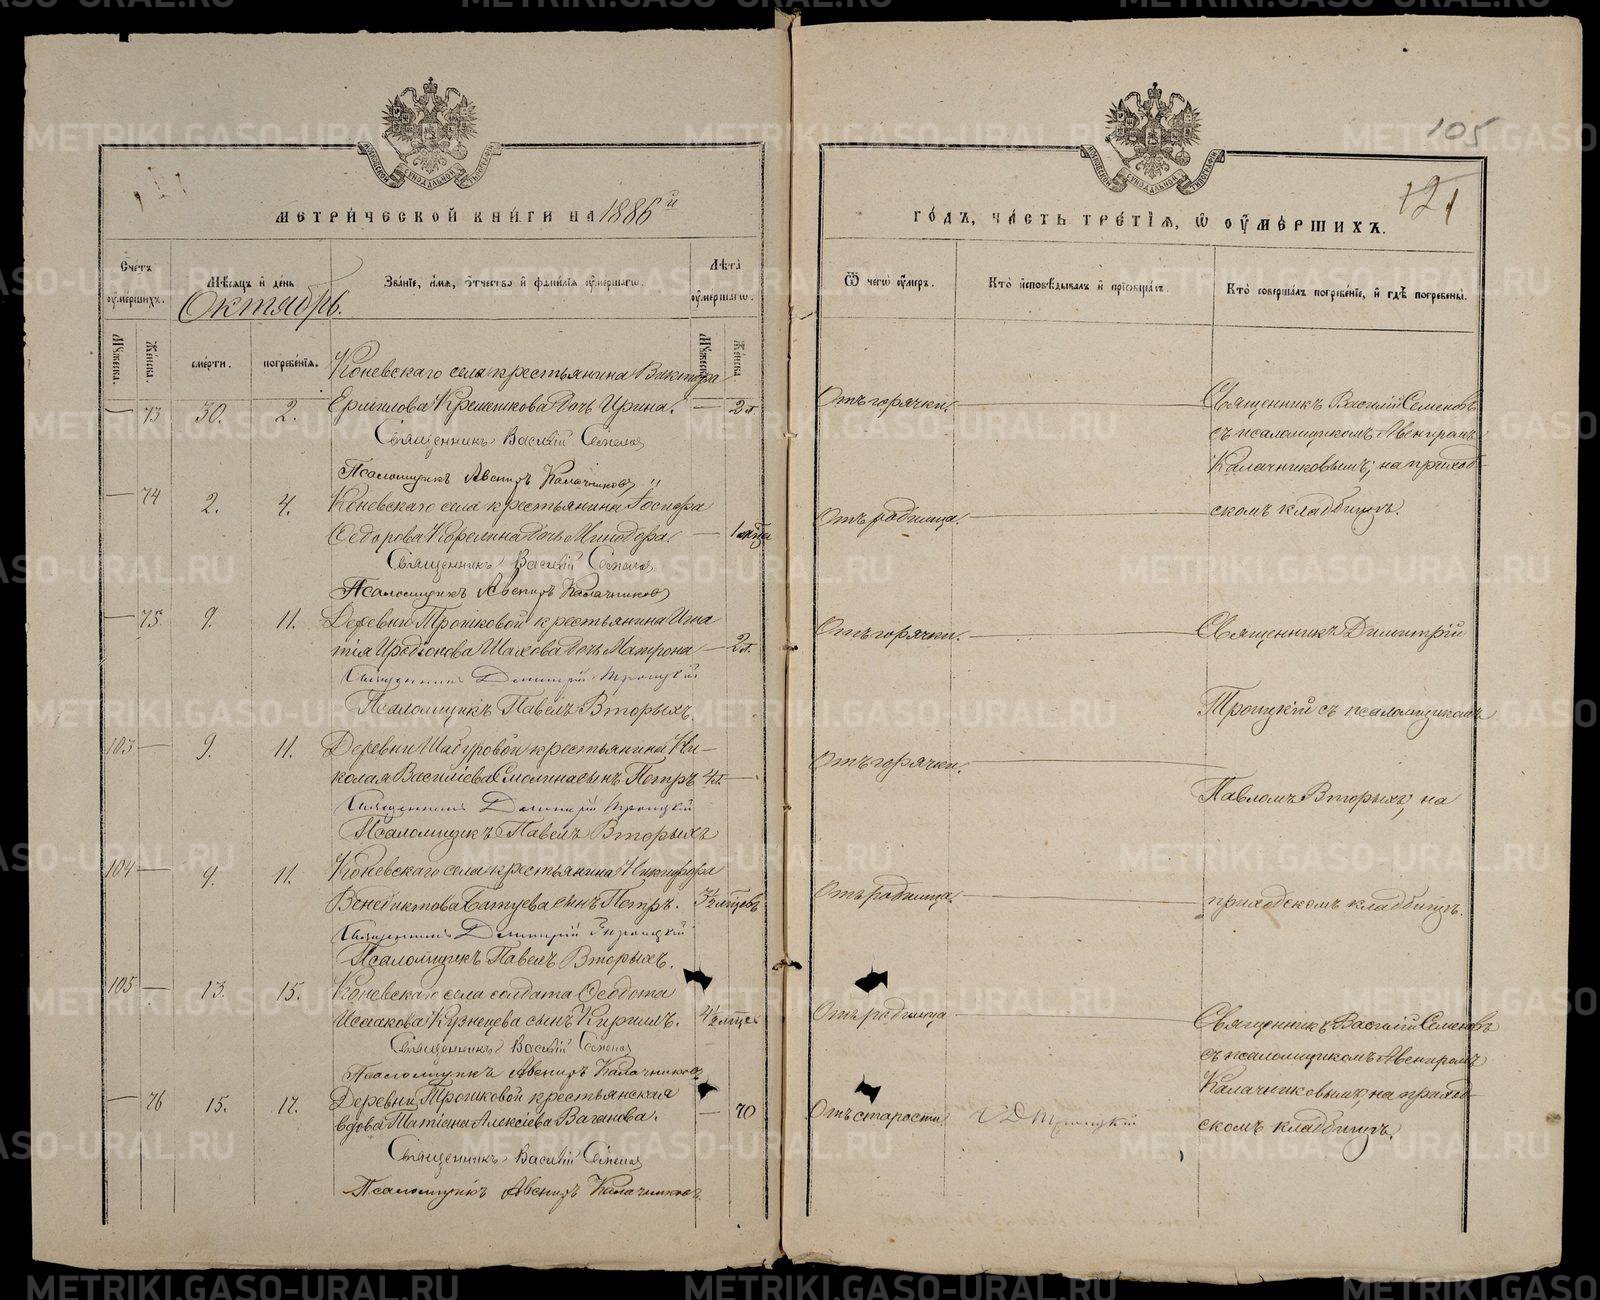 МЕТРИЧЕСКОЙ КНИГИ НА 1886й
Счетъ умершихъ.
Мѣсяцъ и день
Октябрь.
Званіе, имя, отчество и фамилія умершаго.
Лѣта умершаго.
Мужеска.
Женска.
смерти.
погребенія.
Мужеска.
Женска.
Коневскаго села крестьянина Виктора
— 73 30. 2. Ермилова дочь Ирина. — 2 л.
Священникъ Василій Семеновъ
Псаломщикъ Авениръ Калачниковъ
— 74 2. 4. Коневскаго села крестьянина Іосифа
Ѳедорова Корелина дочь Минодора — 1 мѣсяца
Священникъ Василій Семеновъ
Псаломщикъ Авениръ Калачниковъ
— 75. 9. 11. Деревни Трошковой крестьянина Игна
тія Иродіонова Шахова дочь Матрона — 2 л.
Священникъ Димитрій Троицкій
Псаломщикъ Павелъ Вторыхъ.
103 — 9. 11. Деревни Шайтуровой крестьянина Ни-
колая Василіева Смолина сынъ Петръ 4 л. —
Священникъ Димитрій Троицкій
Псаломщикъ Павелъ Вторыхъ
104 — 9. 11. Коневскаго села крестьянина Никифора
Венедиктова Батуева сынъ Петръ. 3½ мѣсяцовъ
Священникъ Димитрій Троицкій
Псаломщикъ Павелъ Вторыхъ.
105 — 13. 15. Коневскаго села солдата Ѳеодота
Исаакова Кузнецева сынъ Кириллъ. 4½ мѣсяца
Священникъ Василій Семеновъ
Псаломщикъ Авениръ Калачниковъ
— 76 15. 17. Деревни Трошковой крестьянская
вдова Татіана Алексіева Ваганова. — 70
Священникъ Василій Семеновъ
Псаломщикъ Авениръ Калачниковъ
105
121
ГОДЪ, ЧАСТЬ ТРЕТІЯ, Ѡ ОУМЕРШИХЪ.
Ѿ чего умеръ.
Кто исповѣдывалъ и пріобщалъ.
Кто совершалъ погребеніе, и гдѣ погребены.
Отъ горячки. —
Священникъ Василій Семеновъ
съ псаломщикомъ Авениромъ
Калачниковымъ; на приход-
скомъ кладбищѣ.
Отъ родимца. —
Отъ горячки. —
Священникъ Димитрій
Троицкій съ псаломщикомъ
Отъ горячки. —
Павломъ Вторыхъ; на
Отъ родимца. —
приходскомъ кладбищѣ.
Отъ родимца —
Священникъ Василій Семеновъ
съ псаломщикомъ Авениромъ
Калачниковымъ; на приход-
скомъ кладбищѣ.
Отъ старости. С Д Троицкій
METRIKI.GASO-URAL.RU